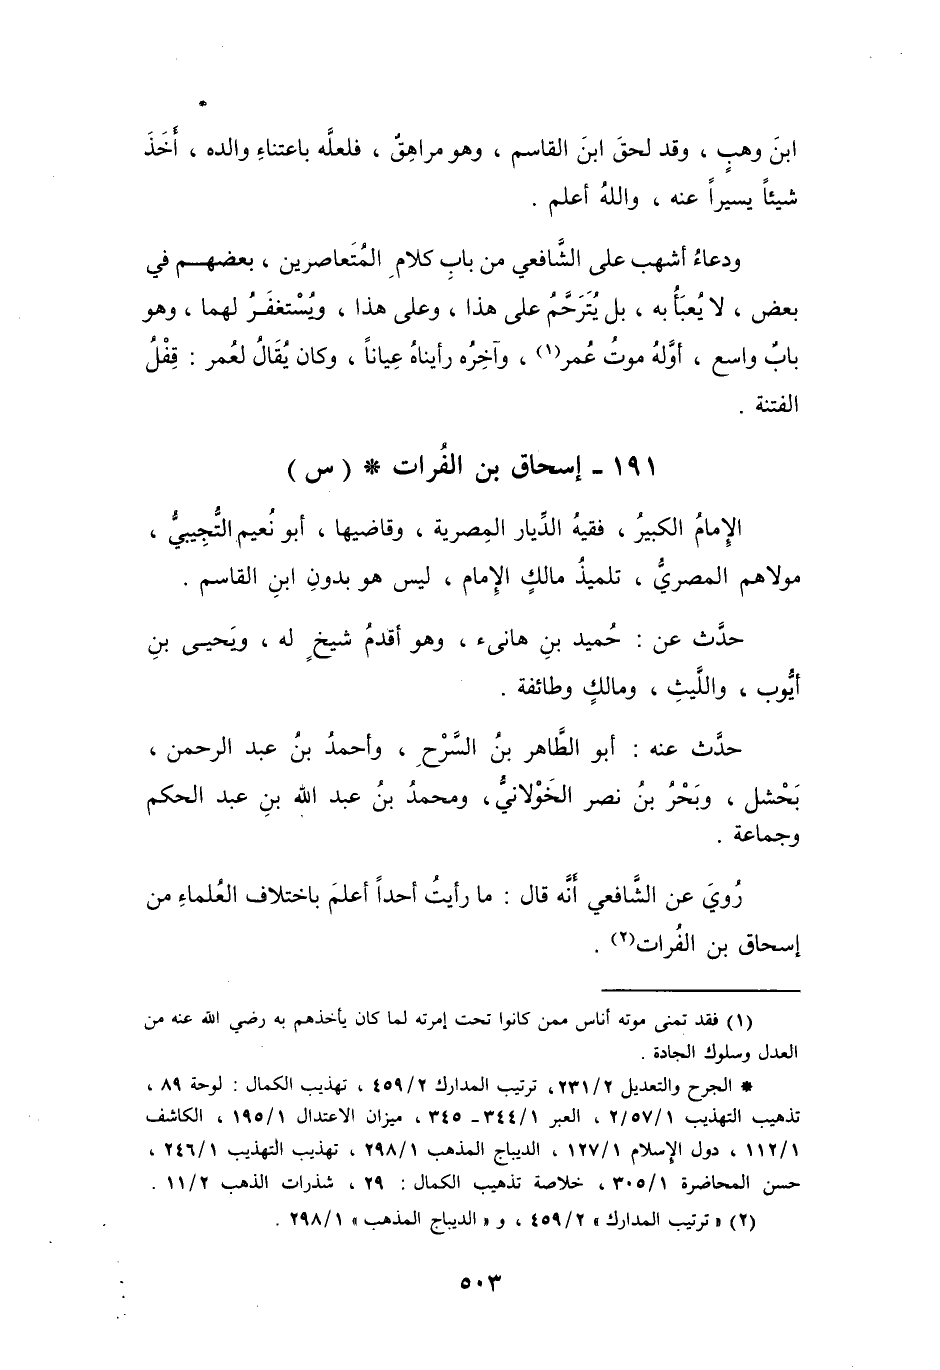 ابنَ وهبٍ ، وقد لحقَ ابنَ القاسم ، وهو مراهِقٌ ، فلعلَّه باعتناءِ والده ، أَخَذَ
شيئاً يسيراً عنه ، واللهُ أعلم .
ودعاءُ أشهب على الشَّافعي من بابِ كلامِ المُتَعاصرين ، بعضهـم في
بعض ، لا يُعبَأُ به ، بل يُتَرَحَّمُ على هذا ، وعلى هذا ، ويُسْتغفَـرُ لهما ، وهو
بابٌ واسع ، أوَّلهُ موتُ عُمر(١) ، وآخِرُه رأيناهُ عِياناً ، وكان يُقَالُ لعُمر : قِفْلُ
الفتنة .
١٩١ - إسحاق بن الفُرات * ( س )
الإِمامُ الكبيرُ ، فقيهُ الدِّيار المِصرية ، وقاضيها ، أبو نُعيم التُّجِيبيُّ ،
مولاهم المصريُّ ، تلميذُ مالكٍ الإِمام ، ليس هو بدونِ ابنِ القاسم .
حدَّث عن : حُميد بنِ هانىء ، وهو أقدمُ شيخٍ له ، ويَحيـى بنِ
أيُّوب ، واللَّيثِ ، ومالكٍ وطائفة .
حدَّث عنه : أبو الطَّاهر بنُ السَّرْحِ ، وأحمدُ بنُ عبد الرحمن ،
بَحْشل ، وبَحْرُ بنُ نصر الخَوْلانيُّ، ومحمدُ بنُ عبد الله بنِ عبد الحكم
وجماعة .
رُويَ عن الشَّافعي أَنَّه قال : ما رأيتُ أحداً أعلمَ باختلاف العُلماءِ من
إسحاق بن الفُرات(٢) .
(١) فقد تمنى موته أناس ممن كانوا تحت إمرته لما كان يأخذهم به رضي الله عنه من
العدل وسلوك الجادة .
* الجرح والتعديل ٢٣١/٢، ترتيب المدارك ٤٥٩/٢ ، تهذيب الكمال : لوحة ٨٩ ،
تذهيب التهذيب ٢/٥٧/١ ، العبر ٣٤٤/١ - ٣٤٥ ، ميزان الاعتدال ١٩٥/١ ، الكاشف
١١٢/١ ، دول الإسلام ١٢٧/١ ، الديباج المذهب ٢٩٨/١ ، تهذيب التهذيب ٢٤٦/١ ،
حسن المحاضرة ٣٠٥/١ ، خلاصة تذهيب الكمال : ٢٩ ، شذرات الذهب ١١/٢ .
(٢) « ترتيب المدارك » ٤٥٩/٢ ، و « الديباج المذهب » ٢٩٨/١ .
٥٠٣